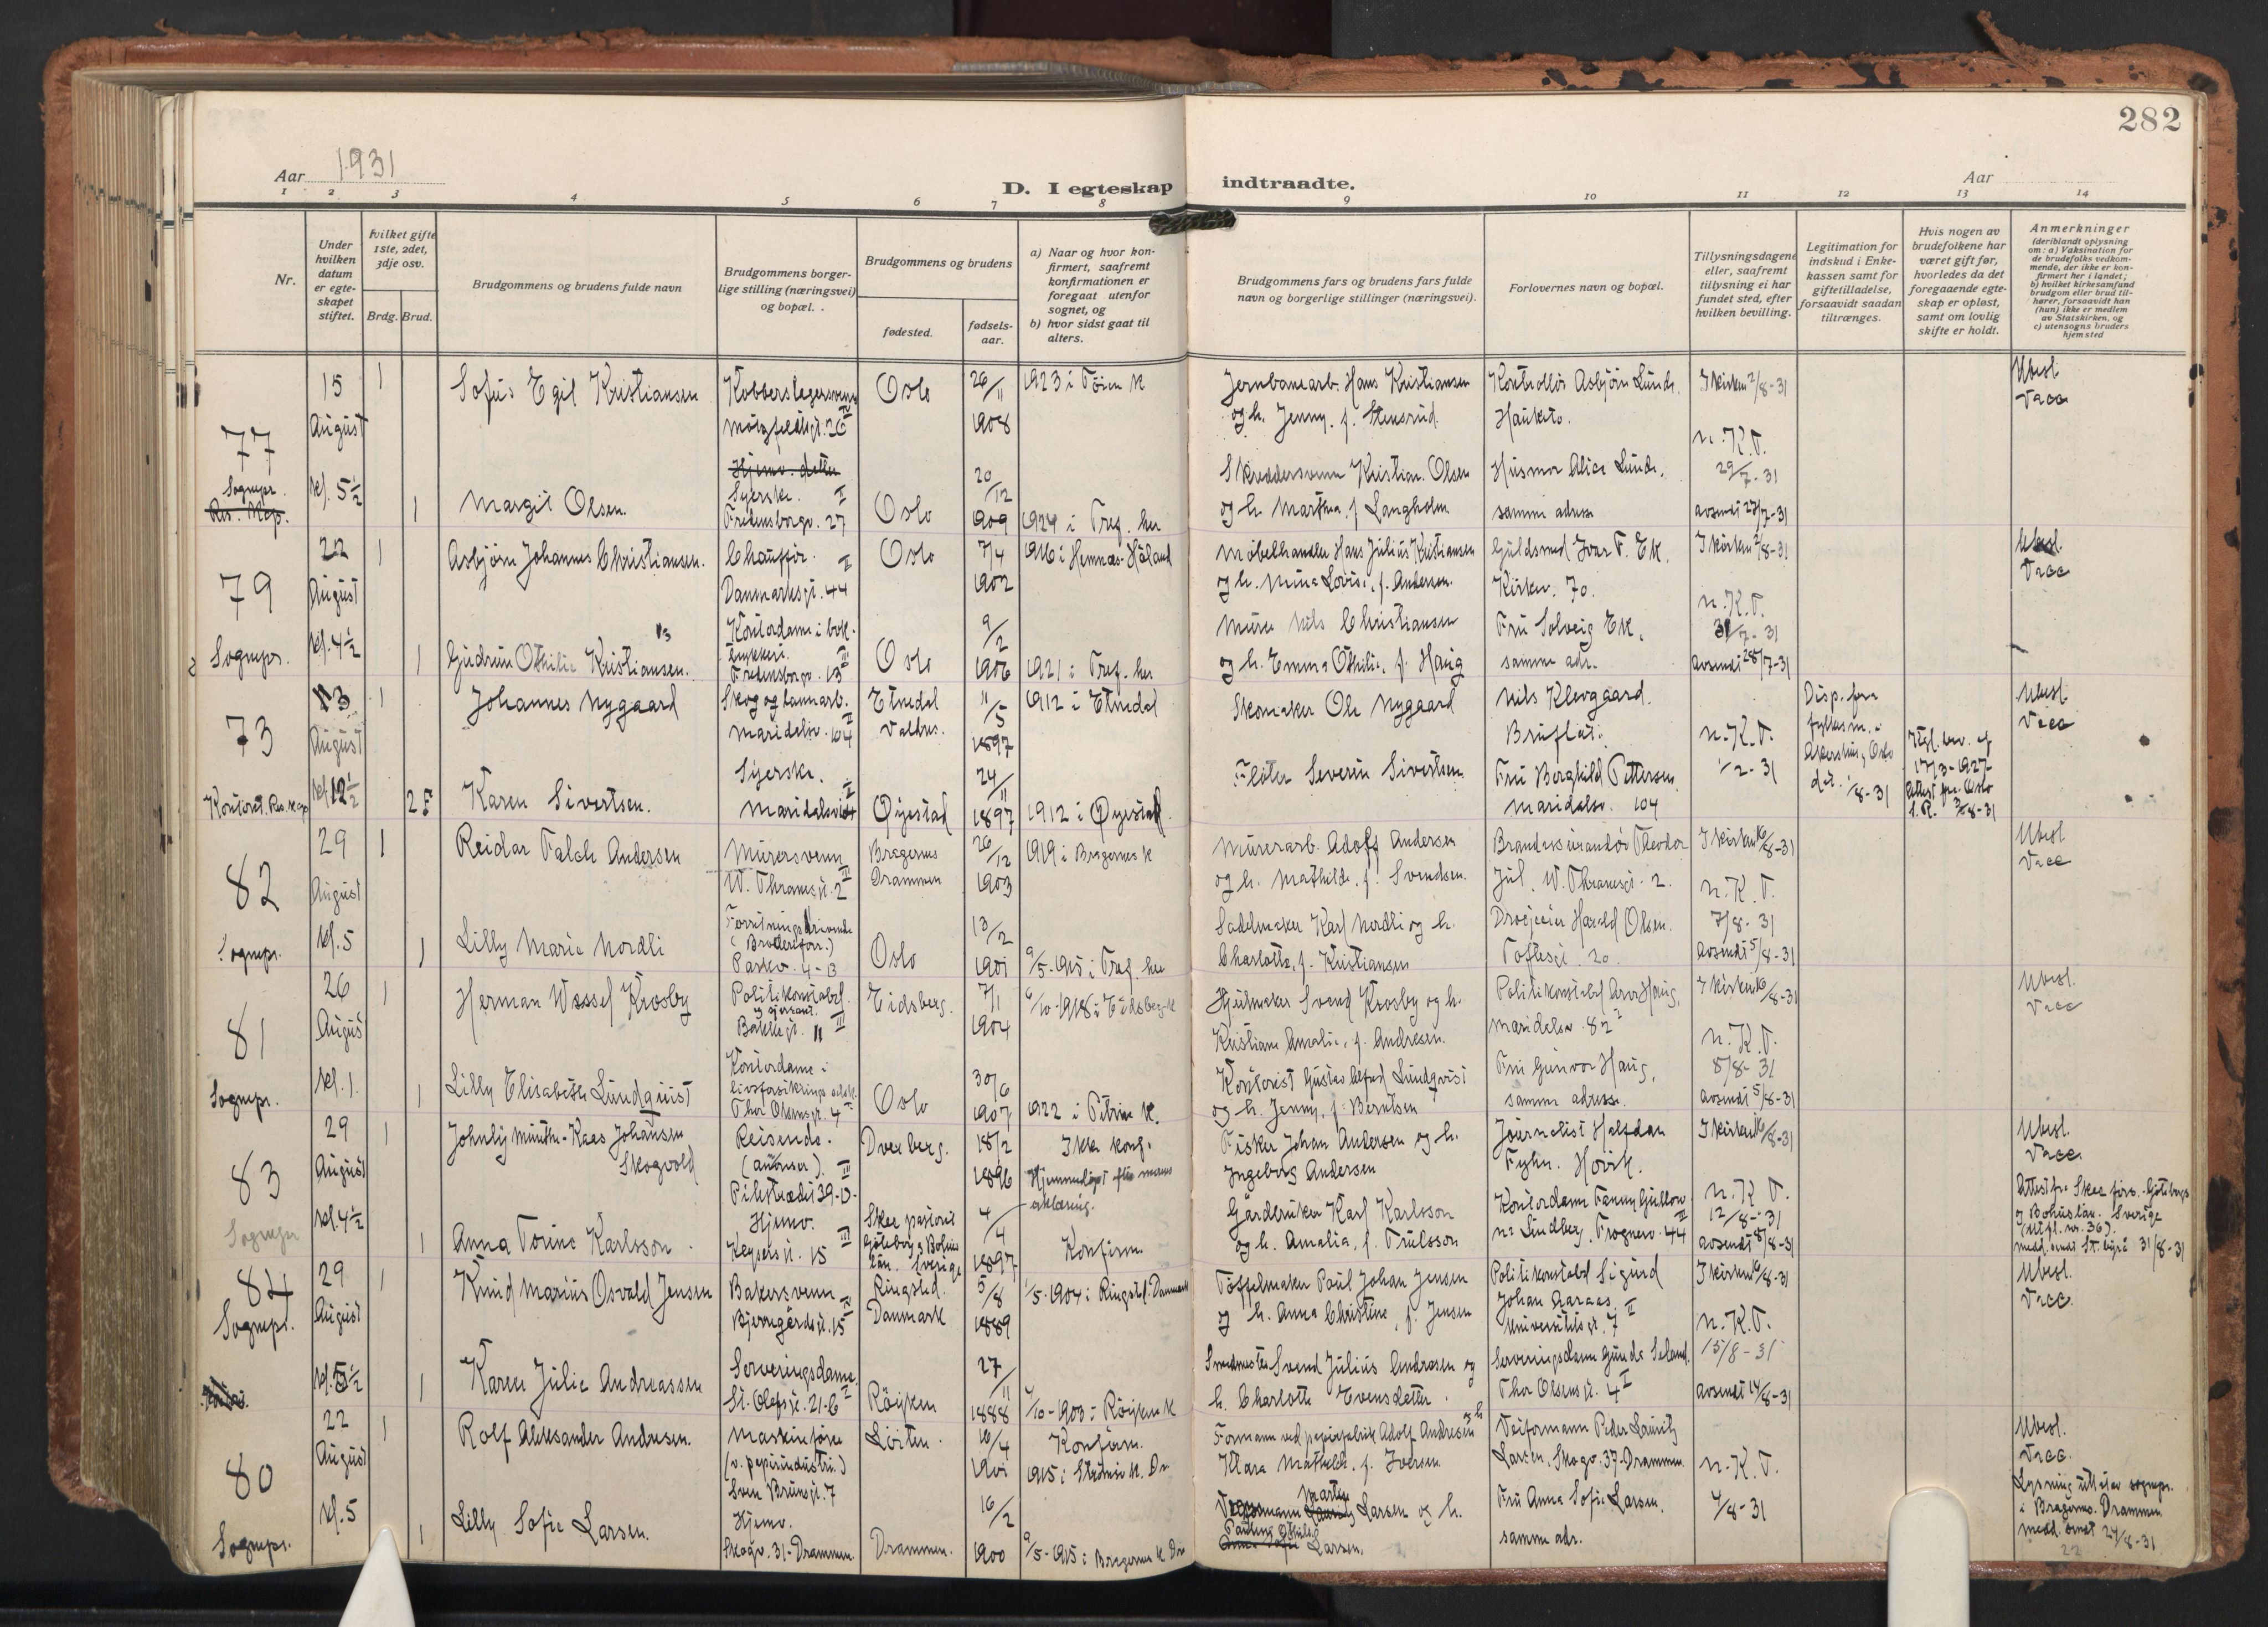 282
Aar 1931
D. I egteskap indtraadte.
Aar
1 2 3 4 5 6 7 8 9 10 11 12 13 14
Nr.
Under hvilken datum er egteskapet stiftet.
hvilket gifte 1ste, 2det, 3dje osv.
Brdg. Brud.
Brudgommens og brudens fulde navn
Brudgommens borgerlige stilling (næringsvei) og bopæl.
Brudgommens og brudens
fødested.
fødselsaar.
a) Naar og hvor konfirmert, saafremt konfirmationen er foregaat utenfor sognet, og
b) hvor sidst gaat til alters.
Brudgommens fars og brudens fars fulde navn og borgerlige stillinger (næringsvei).
Forlovernes navn og bopæl.
Tillysningsdagene eller, saafremt tillysning ei har fundet sted, efter hvilken bevilling.
Legitimation for indskud i Enkekassen samt for giftetilladelse, forsaavidt saadan tiltrænges.
Hvis nogen av brudefolkene har været gift før, hvorledes da det foregaaende egteskap er opløst, samt om lovlig skifte er holdt.
Anmerkninger
(deriblandt oplysning om: a) Vaksination for de brudefolks vedkommende, der ikke er konfirmert her i landet; b) hvilket kirkesamfund brudgom eller brud tilhører, forsaavidt han (hun) ikke er medlem av Statskirken, og c) utensogns bruders hjemsted
77 Sognepr. Res. Kap.
15 August kl. 5½
1 Sofus Egil Kristiansen
Kobberslagersvenn
Oslo 26/11 1908
1923 i Tøien K
Jernbanearb. Hans Kristiansen
og h. Jenny, f. Stensrud.
Kontrollør Asbjørn Lunde.
Hauketo.
I kirken 2/8-31
n. K. T.
29/7-31
avsendt 27/7-31
Ubesl.
Vacc
1 Margit Olsen.
Syerske. II
Fredensborgv. 27
Oslo 20/12 1909
1924 i Tref. her
Skreddersvenn Kristian Olsen
og h. Marthea, f. Langholm
Husmor Alice Lunde,
samme adresse
79 Sognepr.
22 August kl. 4½
1 Asbjørn Johannes Christiansen.
Chauffør. II
Danmarksgt. 44
Oslo 7/4 1902
1916 i Hemnæs-Høland
Møbelhandler Hans Julius Kristiansen
og h. Mina Lovise, f. Andersen.
Guldsmed Ivar F. Ek.
Kirkev. 70.
I kirken 2/8-31
n. K. T.
31/7-31
avsendt 28/7-31
Ubesl.
Vacc
1 Gudrun Othilie Kristiansen.
Kontordame i boktrykkeri. III
Fredensborgv. 13
Oslo 9/2 1906
1921 i Tref. her
Murer Nils Christiansen
og h. Emma Othilie, f. Haug
Fru Solveig Ek,
samme adr.
73 Kontoret. Res. kap
13 August kl. 12½
1 Johannes Nygaard
Skog og tømmerarb.
Maridalsv. 104 II
Etnedal Valdres. 11/5 1897
1912 i Etnedal
Skomaker Ole Nygaard
Nils Klevgaard.
Bruflat.
n. K. T.
1/2-31
Disp. fra fylkesm. i Akershus, Oslo
dat. 1/8-31
Kgl. bev. af 17/3-1927
Attest fra Oslo S. R. 3/8-31
Ubesl.
Vacc
2 F Karen Sivertsen.
Syerske.
Maridalsv. 104 II
Øyestad 24/11 1897
1912 i Øyestad.
Fløter Severin Sivertsen
Fru Borghild Pettersen
Maridalsv. 104
82 Sognepr.
29 August kl. 5
1 Reidar Falch Andersen
Murersvenn
W. Thranesgt. 2 III
Bragernes Drammen 26/12 1903
1919 i Bragernes K
Murerarb. Adolf Andersen
og h. Mathilde, f. Svendsen.
Brandassurandør Theodor
Jul, W. Thranesgt. 2.
I kirken 16/8-31
n. K. T.
7/8-31
avsendt 5/8-31
Ubesl.
Vacc
1 Lilly Marie Nordli
Forretningsdrivende
(Broderiforr.)
Parkv. 4-B
Oslo 13/2 1901
9/5-1915 i Tref. her
Sadelmaker Karl Nordli og h.
Charlotte, f. Kristiansen
Droejeier Harald Olsen.
Toftesgt. 20.
81 Sognepr.
26 August kl. 1.
1 Herman Wessel Krosby
Politikonstabel
Bakkegt. 11 III
Eidsberg. 7/1 1904
6/10-1918 i Eidsberg K
Hjulmaker Svend Krosby og h.
Kristiane Amalie, f. Andresen.
Politikonstabel Arve Haug,
Maridalsv. 82²
I kirken 16/8-31
n. K. T.
8/8-31
avsendt 5/8-31
Ubesl.
Vacc
1 Lilly Elisabeth Lundquist
Kontordame i
livsforsikringsselsk.
Thor Olsensgt. 4 II
Oslo 30/6 1907
1922 i Petrus K.
Kontorist Gustav Alfred Lundqvist
og h. Jenny, f. Berntsen
Fru Gunvor Haug,
samme adresse.
83 Sognepr
29 August kl. 4½
1 Johnly Munthe-Kaas Johansen
Skogvold
Reisende.
Pilestrædet 39-B- III
Dverberg. 18/2 1896
Ikke konf.
Hjemmedøpt efter mors
erklæring.
Fisker Johan Andersen og h.
Ingeborg Andersen
Journalist Halfdan
Fyhn. Høvik.
I kirken 16/8-31
n. K. T.
12/8-31
avsendt 8/8-31
Ubesl.
Vacc.
1 Anna Torine Karlsson.
Hjemv.
Keysersgt. 15 III
Skee pastorat
Göteborgs Bohus
län. Sverige
4/4 1897
Konfirm.
Gårdbruker Karl Karlsson
og h. Amalia, f. Trulsson
Kontordame Fanny Gjullow
Lindberg. Frognerv. 44 II
Attest fra Skee förs.-Göteborgs
og Bohuslän. Sverige
medd. sendt St. byrå 31/8-31
84 Sognepr.
29 August kl. 5½
1 Knud Marius Osvald Jensen
Bakersvenn
Bjerregårdsgt. 15 II
Ringsted. Danmark 5/8 1889
1/5-1904 i Ringsted. Danmark
Tøffelmaker Poul Johan Jensen
og h. Anna Christine, f. Jensen
Politikonstabel Sigurd
Johan Aaraas.
Universitetsgt. 7 II
I kirken 16/8-31
n. K. T.
15/8-31
avsendt 14/8-31
Ubesl.
Vacc.
1 Karen Julie Andreassen
Serveringsdame
St. Olafsgt. 21-C I
Røyken 27/11 1888
4/10-1903 i Røyken K
Smedmester Svend Julius Andresen og
h. Charlotte Evensdatter.
Serveringsdame Gunda Seland.
Thor Olsensgt. 4 I
80 Sognepr.
22 August kl. 5
1 Rolf Aleksander Andresen.
Maskinfører
(v. papirindustri.)
Sven Brunsgt. 7
Løiten. 16/4 1901
Konfirm.
1915 i Strømsø K. Dr
Formann ved papirfabrik Adolf Andresen og h
Klara Mathilde, f. Iversen
Veiformann Peder Lauritz
Larsen, Skogv. 37-Drammen.
n. K. T.
4/8-31
Ubesl.
Vacc.
Lysning uttatav sognepr.
i Bragernes. Drammen
medd. sendt 24/8-31
22
1 Lilly Sofie Larsen.
Hjemv.
Skogv. 31-Drammen.
Drammen. 16/2 1900
9/5-1915 i Bragernes K Dr
Martin Larsen og h.
Pauline Othilie
Anna Sofie Larsen.
Fru Anna Sofie Larsen.
samme adr.